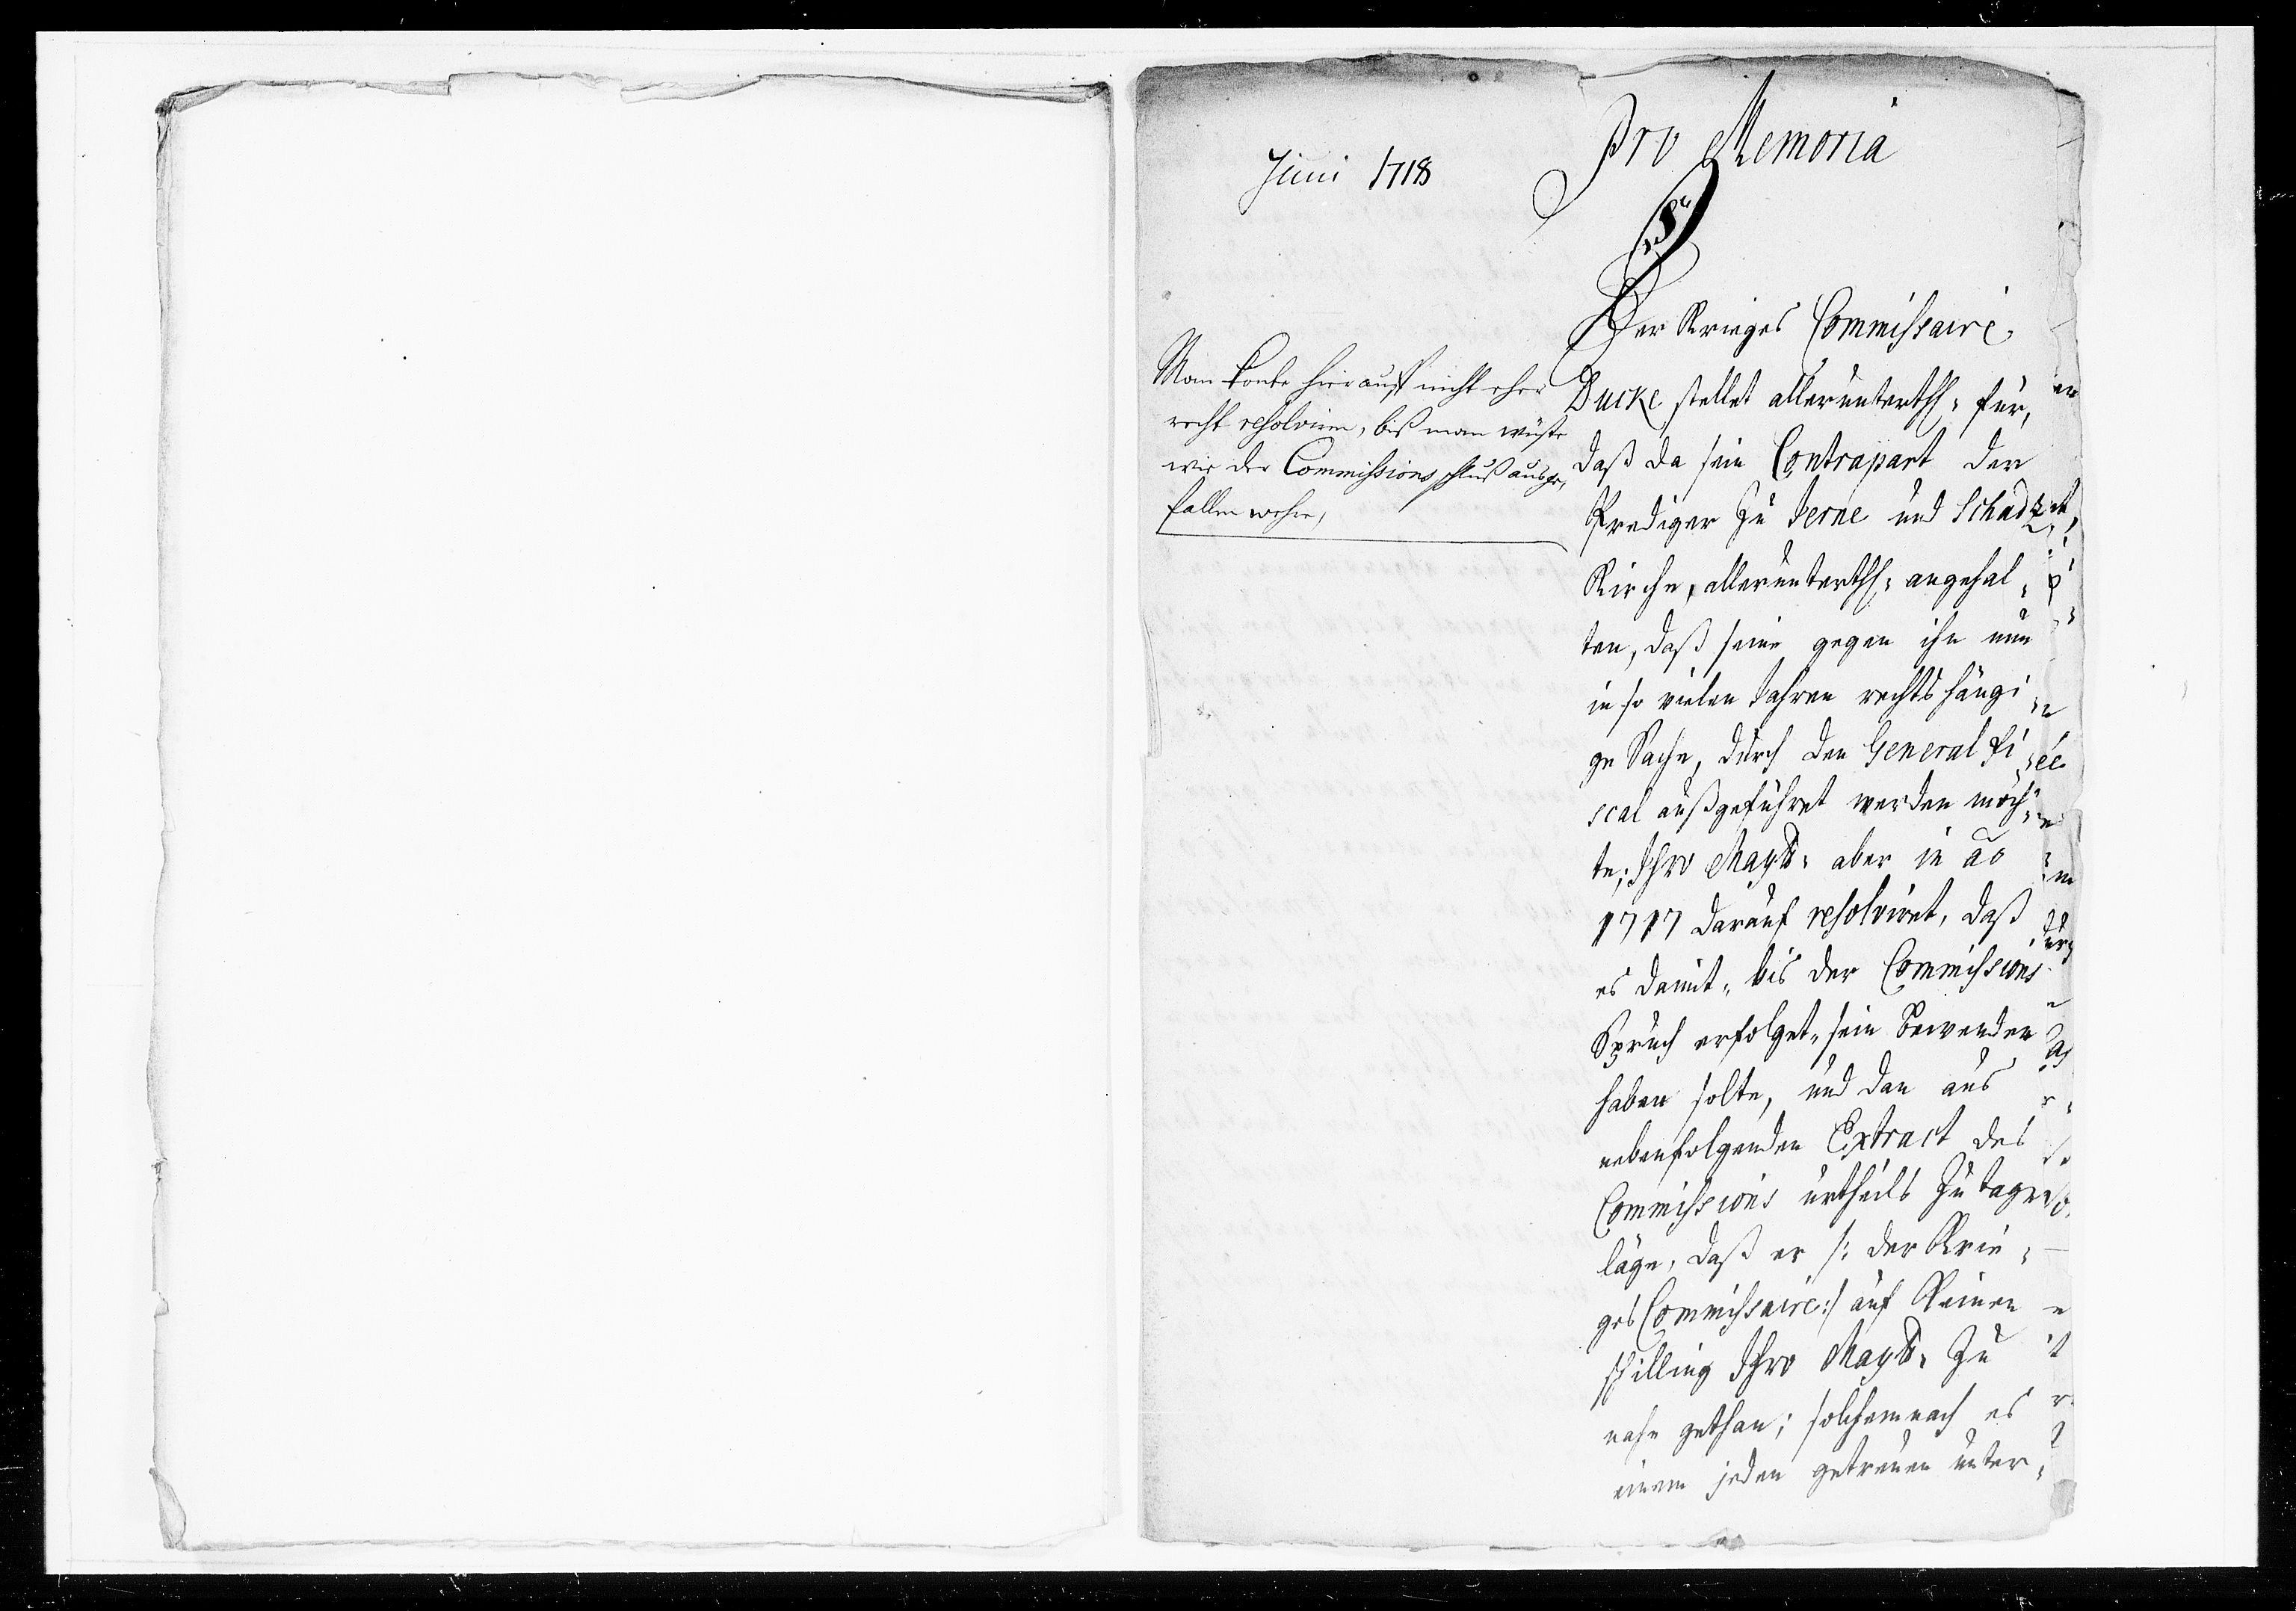 Juni 1718
Pro Memoria
Man konte hierauff nicht eher
recht resolviren, biß man wüste
wie der Commissions schluß ausge,
fallen wehre,
Der Krieges Commissaire
Ducke stellet allerunterth: für,
daß da sein Contrapart der
Prediger zu Jerne und Schads
Kirche, allerunterth: angehal=
ten, daß seine gegen ihn nun
in so vielen Jahren rechtshängi=
ge Sache, durch den General Fi=
scal außgeführet werden möch=
te; Ihro Maytt: aber in ao
1717 darauf resolviret, daß
es damit, bis der Commissions
Spruch erfolget, sein bewenden
haben solte, und dan aus
nebenfolgenden Extract des
Commissions urtheils zu tage
läge, daß er /: der Krie=
ges Commissaire :/ auf keinen
schilling Ihro Maytt: zu
nahe gethan; solchemnach es
einem jeden getreuen unter=